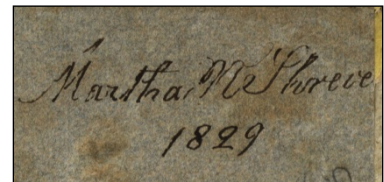 Martha N Shreve
1829